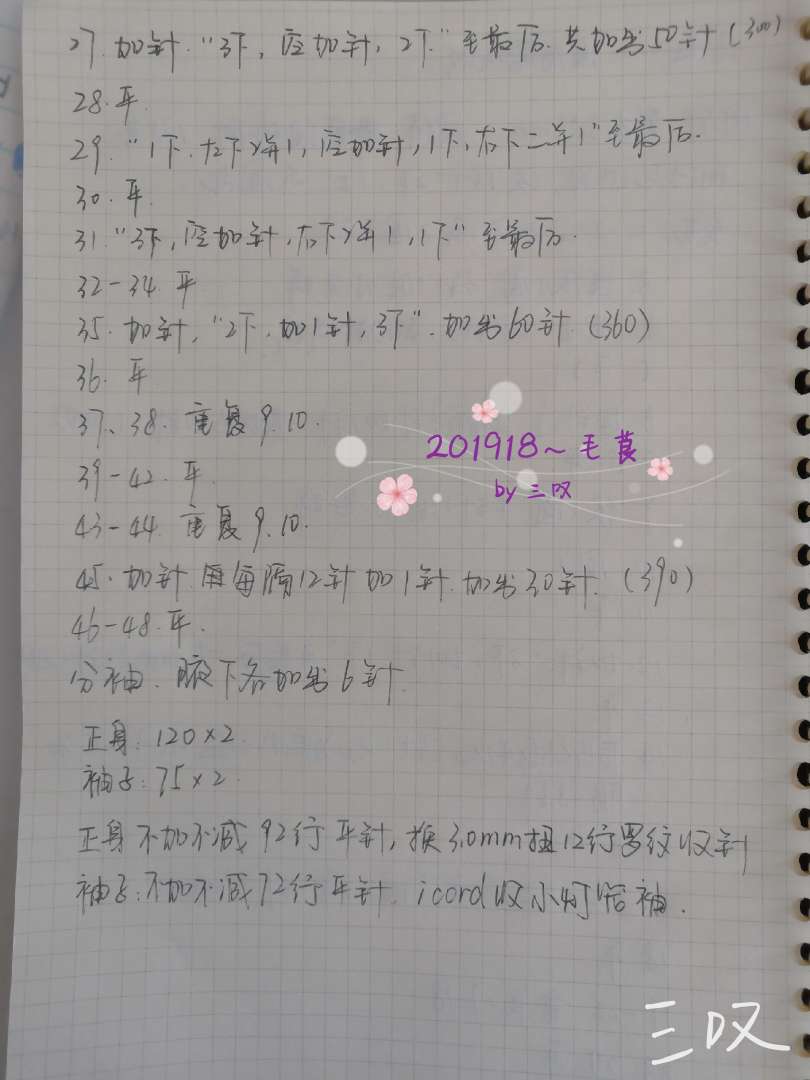 27. 加针. "3下, 空加针, 2下." 至最后. 共加出50针 (300)
28. 平.
29. "1下. 左下2并1, 空加针, 1下, 右下二并1" 至最后.
30. 平.
31. "3下, 空加针, 右下2并1, 1下" 至最后.
32-34. 平
35. 加针, "2下. 加1针, 3下". 加出60针. (360)
36. 平
37、38. 重复9.10.
39-42. 平.
43-44. 重复9.10.
45. 加针. 每隔12针加1针. 加出30针. (390)
46-48. 平.
分袖. 腋下各加出6针.
正身: 120×2.
袖子: 75×2.
正身不加不减92行平针, 换3.0mm 12行罗纹收针
袖子: 不加不减72行平针. icord收小灯笼袖.
201918~毛莨
by 三叹
三叹